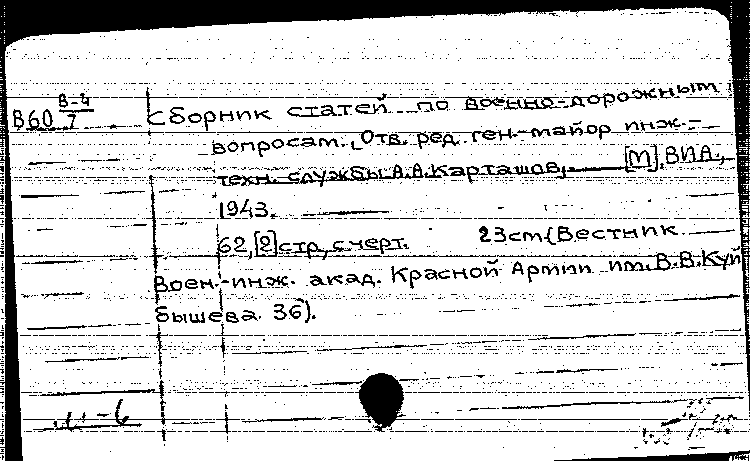 В60 В-4/7
Сборник статей по военно-дорожным
вопросам. Отв. ред. ген.-майор инж.-
техн. службы А.А.Карташов, [М], ВИА,
1943.
62,[2]стр, с черт. 23cm (Вестник
Воен.-инж. акад. Красной Армии им. В.В.Куй
бышева 36).